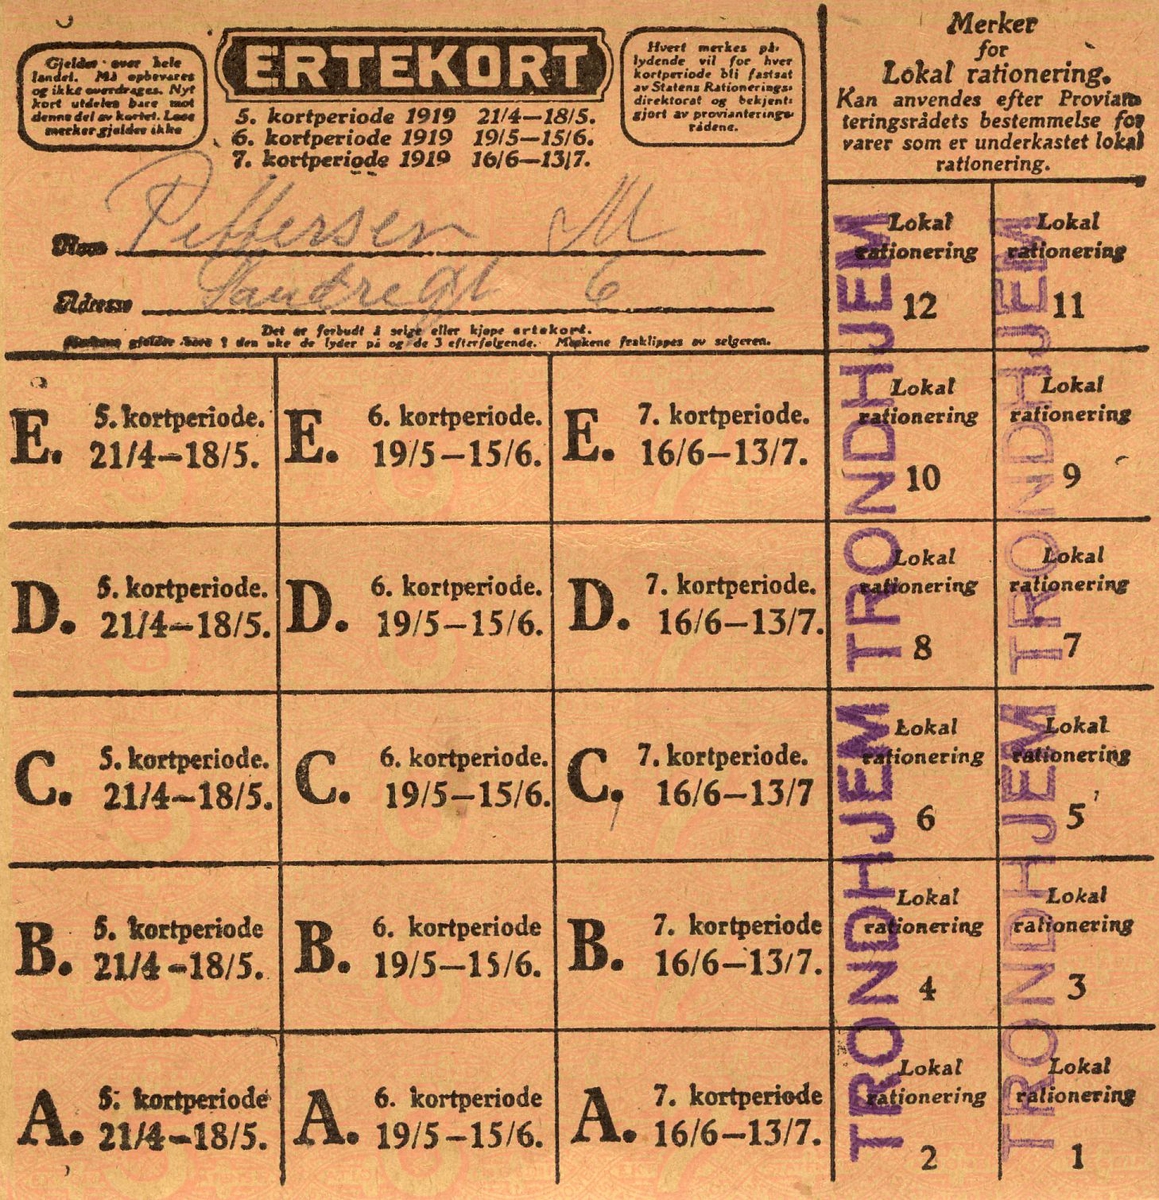 Gjelder over hele
landet. Må opbevares
og ikke overdrages. Nyt
kort utdeles bare mot
denne del av kortet. Løse
merker gjelder ikke
ERTEKORT
5. kortperiode 1919 21/4—18/5.
6. kortperiode 1919 19/5—15/6.
7. kortperiode 1919 16/6—13/7.
Hvert merkes på-
lydende vil for hver
kortperiode bli fastsat
av Statens Rationerings-
direktorat og bekjent-
gjort av provianterings-
rådene.
Merker
for
Lokal rationering.
Kan anvendes efter Provian-
teringsrådets bestemmelse for
varer som er underkastet lokal
rationering.
Navn Pettersen M
Adresse 6
Det er forbudt å selge eller kjøpe ertekort.
Merkene gjelder bare i den uke de lyder på og de 3 efterfølgende. Merkene fraklippes av selgeren.
Lokal
rationering
12
Lokal
rationering
11
E. 5. kortperiode.
21/4—18/5.
E. 6. kortperiode.
19/5—15/6.
E. 7. kortperiode.
16/6—13/7.
Lokal
rationering
10
Lokal
rationering
9
D. 5. kortperiode.
21/4—18/5.
D. 6. kortperiode.
19/5—15/6.
D. 7. kortperiode.
16/6—13/7.
Lokal
rationering
8
Lokal
rationering
7
C. 5. kortperiode.
21/4—18/5.
C. 6. kortperiode.
19/5—15/6.
C. 7. kortperiode.
16/6—13/7
Lokal
rationering
6
Lokal
rationering
5
B. 5. kortperiode
21/4—18/5.
B. 6. kortperiode
19/5—15/6.
B. 7. kortperiode
16/6—13/7.
Lokal
rationering
4
Lokal
rationering
3
A. 5. kortperiode
21/4—18/5.
A. 6. kortperiode
19/5—15/6.
A. 7. kortperiode
16/6—13/7.
Lokal
rationering
2
Lokal
rationering
1
TRONDHJEM
TRONDHJEM
TRONDHJEM
TRONDHJEM